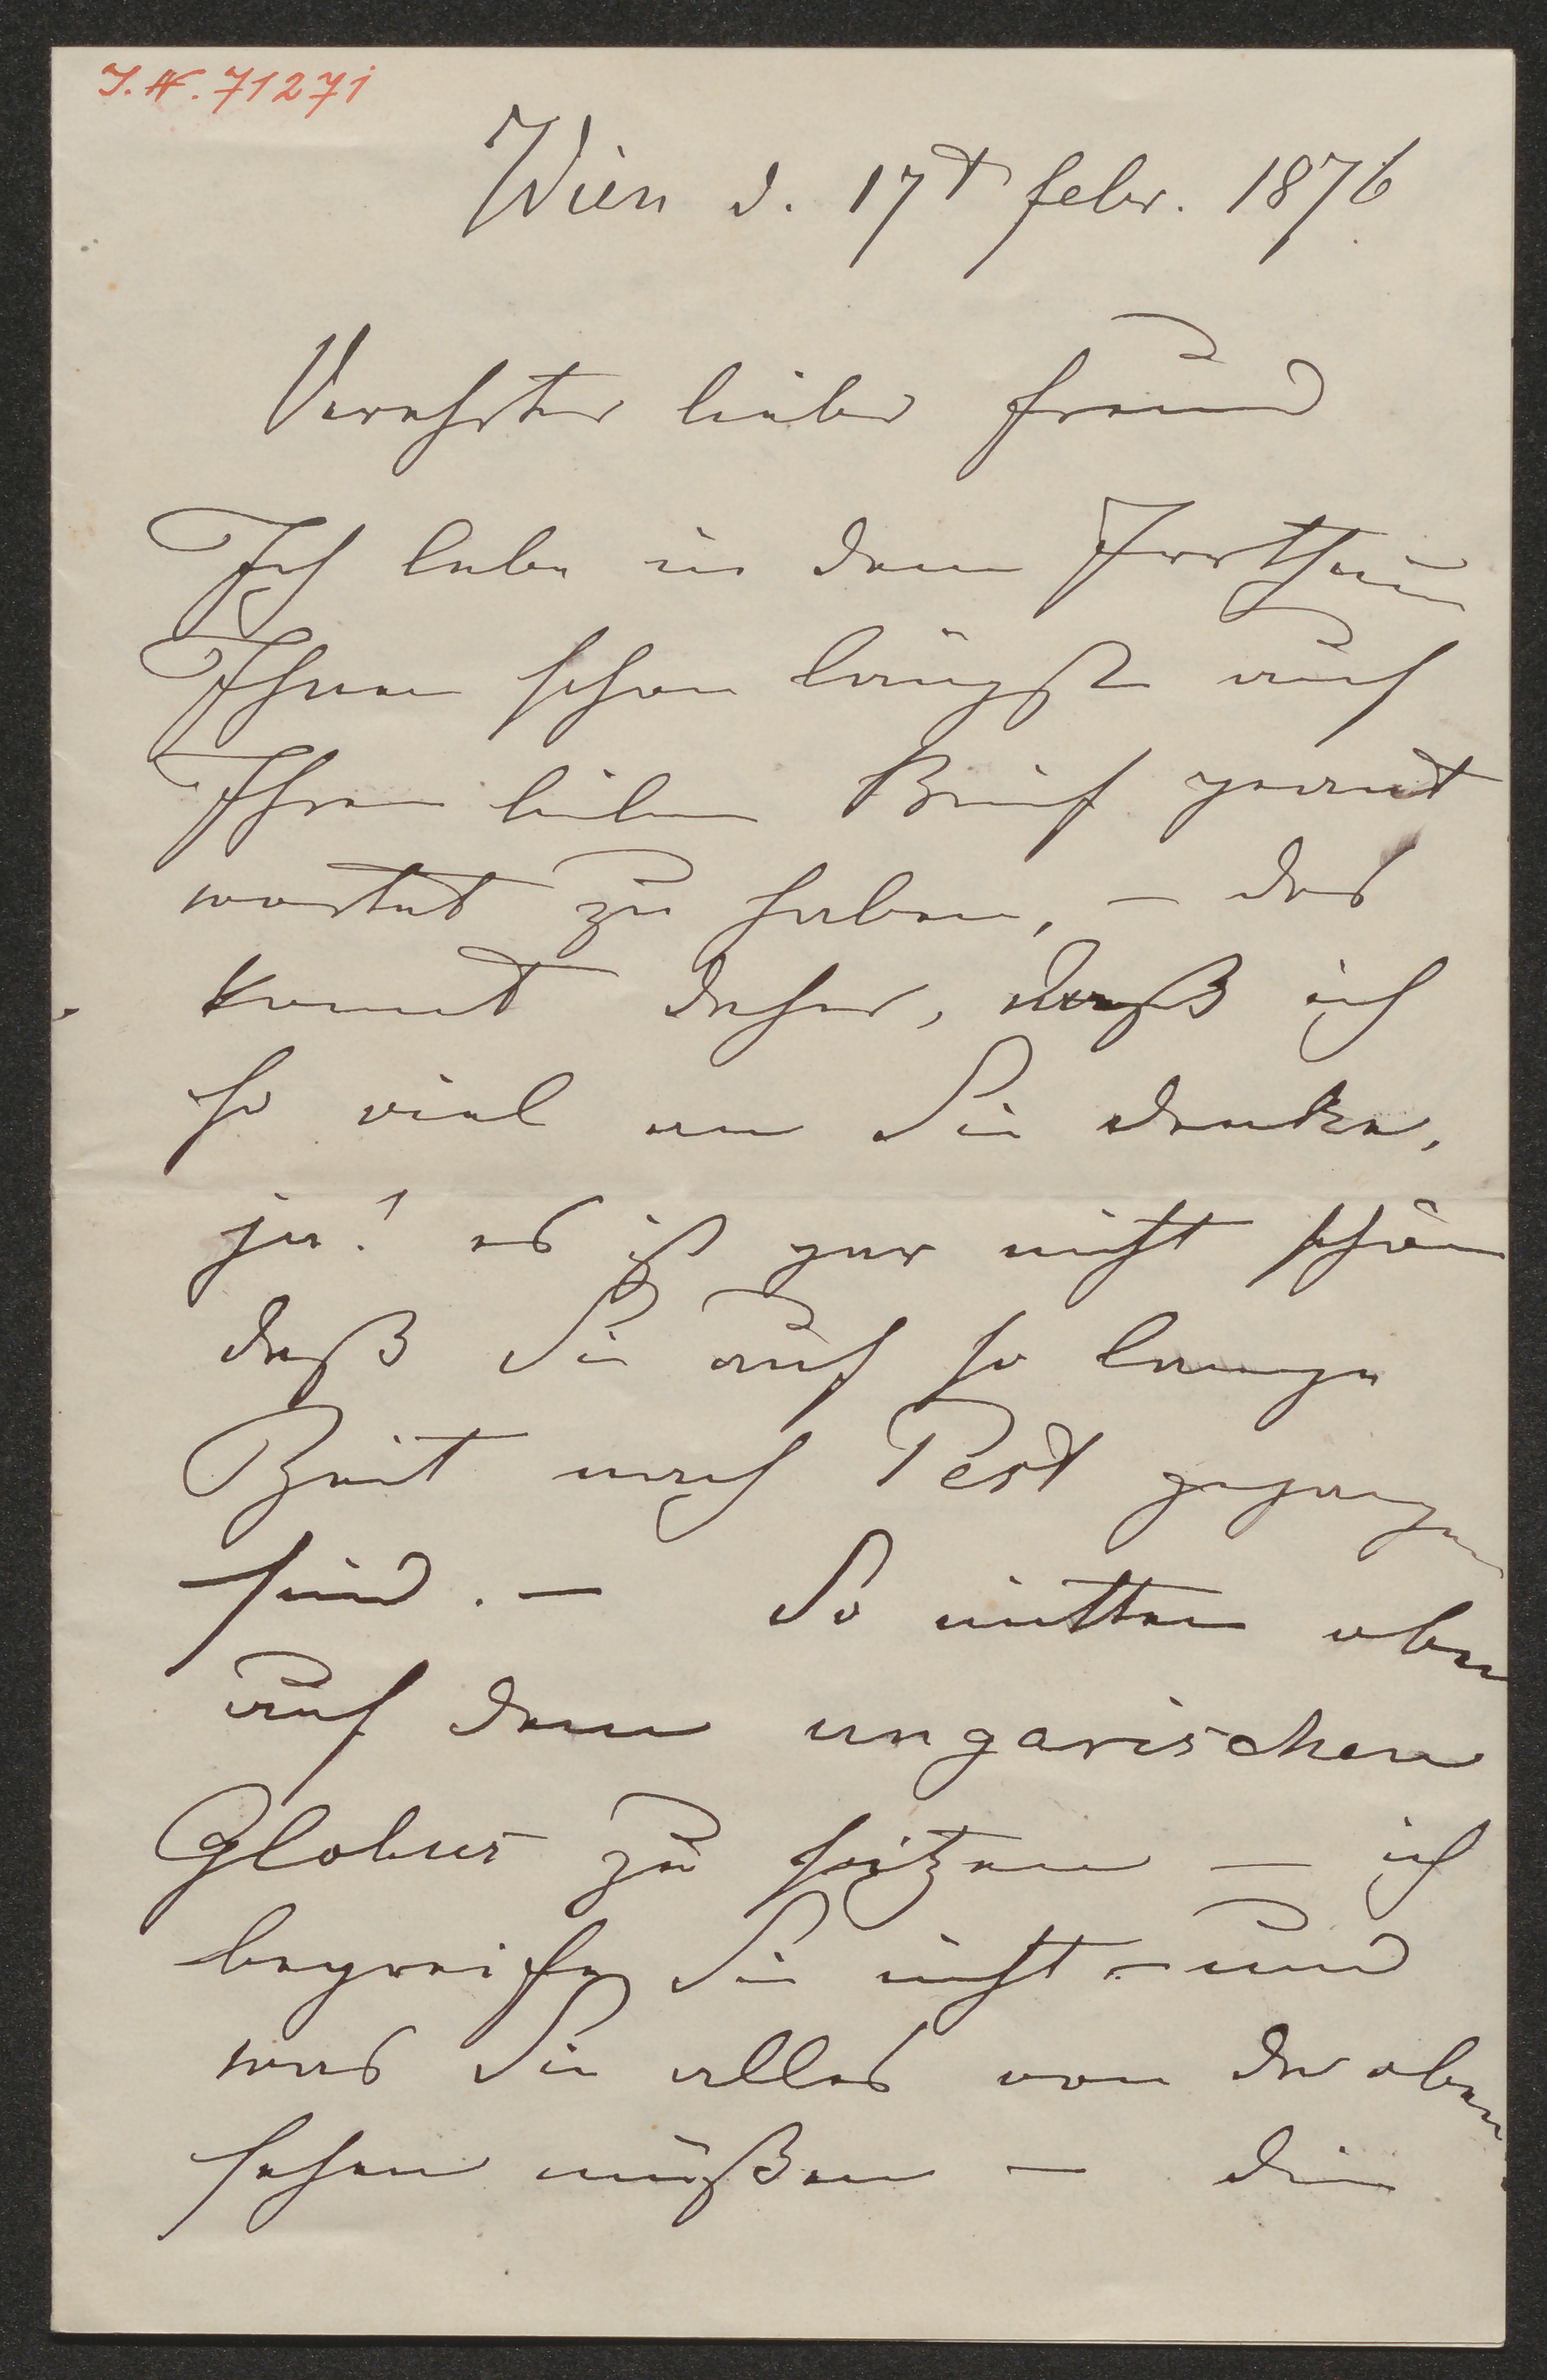 I.N. 71271
Wien d. 17t febr. 1876
Verehrter lieber Freund
Ich lebe in dem Irrthum
Ihnen schon längst auf
Ihren lieben Brief geant
wortet zu haben, – das
komt daher, daß ich
so viel an Sie denke,
ja! es ist gar nicht schön
daß Sie auf so lange
Zeit nach Pest gegangen
sind. – So mitten oben
auf dem ungarischen
Globus zu sitzen – ich
begreife Sie nicht – und
was Sie alles von da oben
sehen müßen – die